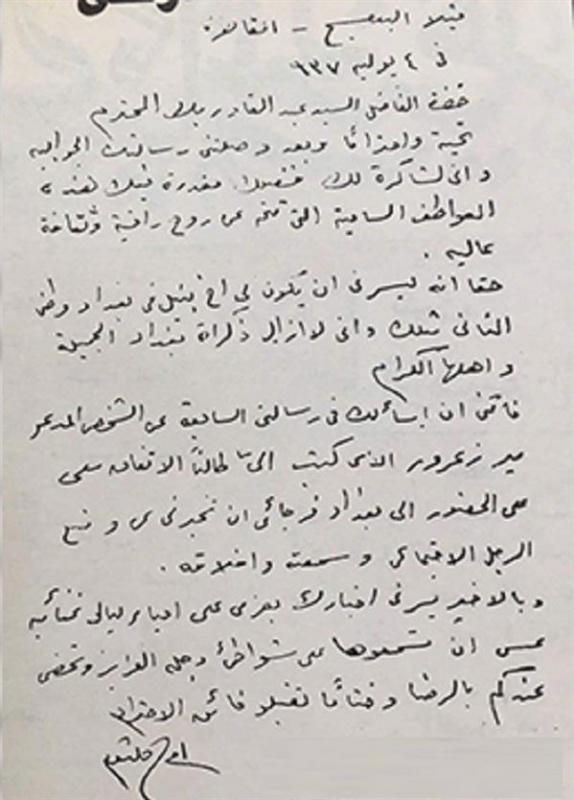 فيلا البديع - القاهرة
في ٤ يوليه ٩٣٧
حضرة الفاضل السيد عبد القادر بك المحترم
تحية واحتراما وبعد وصلتني رسالتك الجوابيه
واني لشاكرة لك فضلك مقدرة فيك هذه
العواطف السامية التي تنم عن روح راقية وثقافة
عاليه .
حقا انه ليسرني ان يكون لي اخ نبيل في بغداد وطني
الثاني مثلك واني لا زال ذكراة بغداد الجميلة
واهلها الكرام
فاتني ان اسألك في رسالتي السابقة عن الشخص المدعو
مير زعرور الذي كتب الي طالبا الاتفاق معي
على الحضور الى بغداد فرجائي ان تخبرني عن وضع
الرجل الاجتماعي وسمعته واخلاقه .
وبالاخير يسرني اخبارك بعزمي على احياء ليالي غنائيه
عسى ان تسمعوها على شواطئ دجله العزيز وتحضى
عندكم بالرضا وختاما تقبلو فائق الاحترام
ام كلثوم